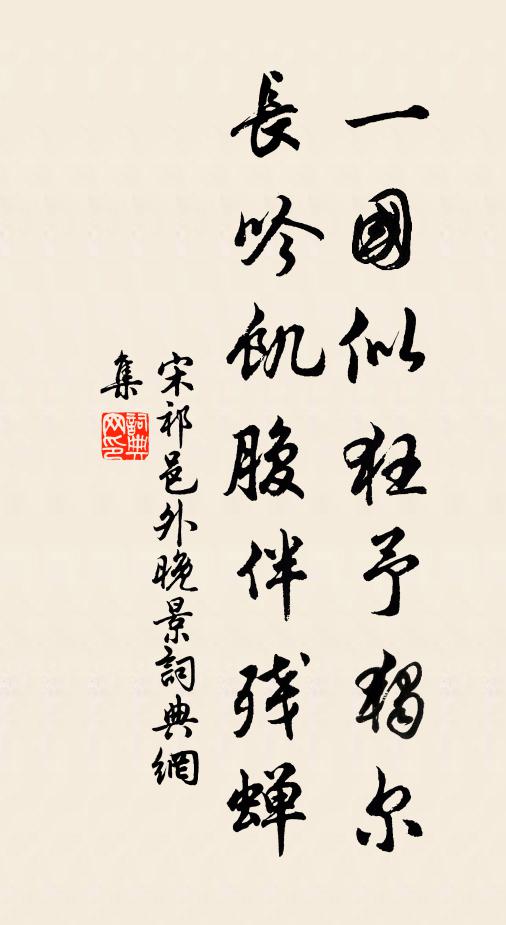 一國似狂予獨尔
長吟飢腹伴残蝉
宋祁邑外晚景詞典網
集
詞典
网印